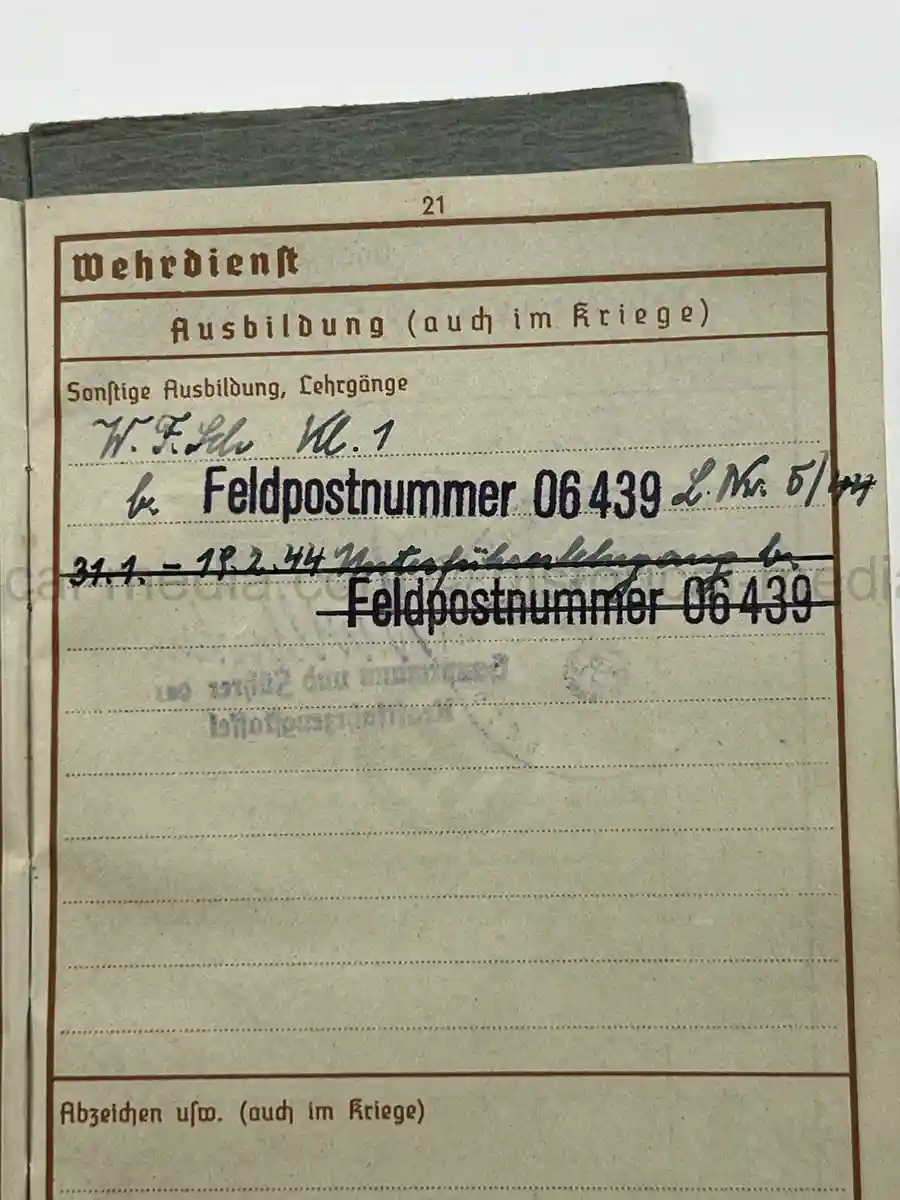 21
Wehrdienst
Ausbildung (auch im Kriege)
Sonstige Ausbildung, Lehrgänge
W. F. Sch Kl. 1
b. Feldpostnummer 06 439 L. Nr. 5/
31.1. – 19.2.44 Unterführerlehrgang b.
Feldpostnummer 06 439
Hauptmann und Führer der
Kraftfahrzeugstaffel
Abzeichen usw. (auch im Kriege)